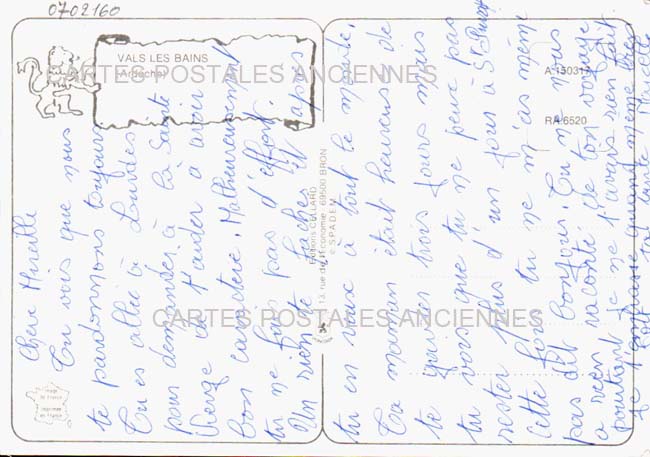 0702160
VALS LES BAINS
(Ardèche)
CARTES POSTALES ANCIENNES
A.150317
RA 6520
Editions CELLARD
13, rue de l'Economie - 69500 BRON
© S.P.A.D.E.M.
Image de France
imprimée en France
CARTES POSTALES ANCIENNES
Chère Mireille
Tu vois que nous
te pardonnons toujours
Tu es allée à Lourdes
pour demander à la Sainte
Vierge de t'aider à avoir
bon caractère. Malheureusement
tu ne fais pas d'effort.
Un rien te fâches et après
tu en veux à tout le monde.
Ta maman était heureuse de
te garder trois jours mais
tu vois que tu ne peux pas
rester plus d'un jour à St
Cette fois tu ne m'as même
pas dit bonjour. Tu ne nous
a rien raconté de ton voyage
pourtant je ne t'avais rien fait.
Je t'embrasse quand même bien
fort ta tante Marcelle